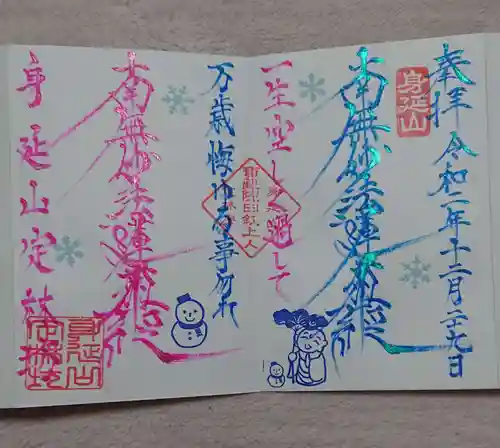 奉拝 令和二年十二月二十九日
身延山
南無妙法蓮華経
一生空しく過して
万歳悔ゆる事勿れ
南無妙法蓮華経
身延山 定林坊